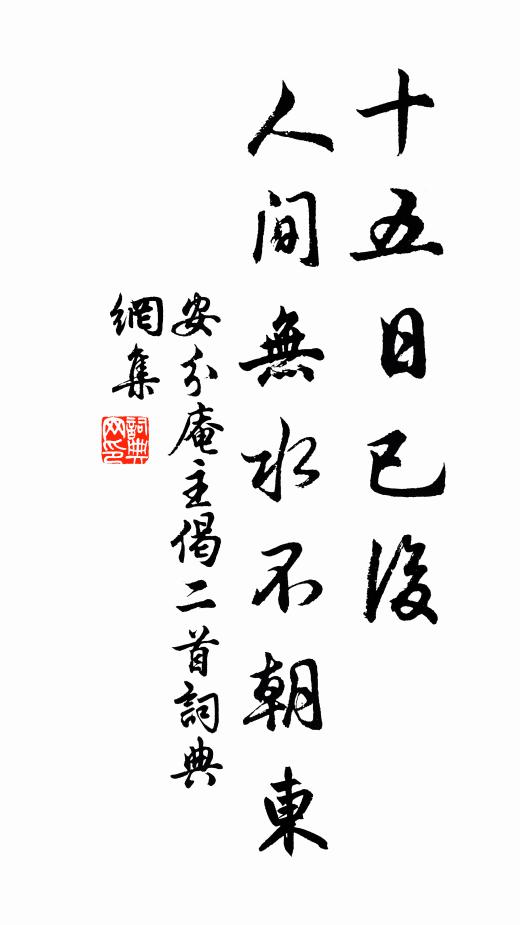 十五日已後
人間無水不朝東
安分庵主偈二首詞典
網集
詞典網印